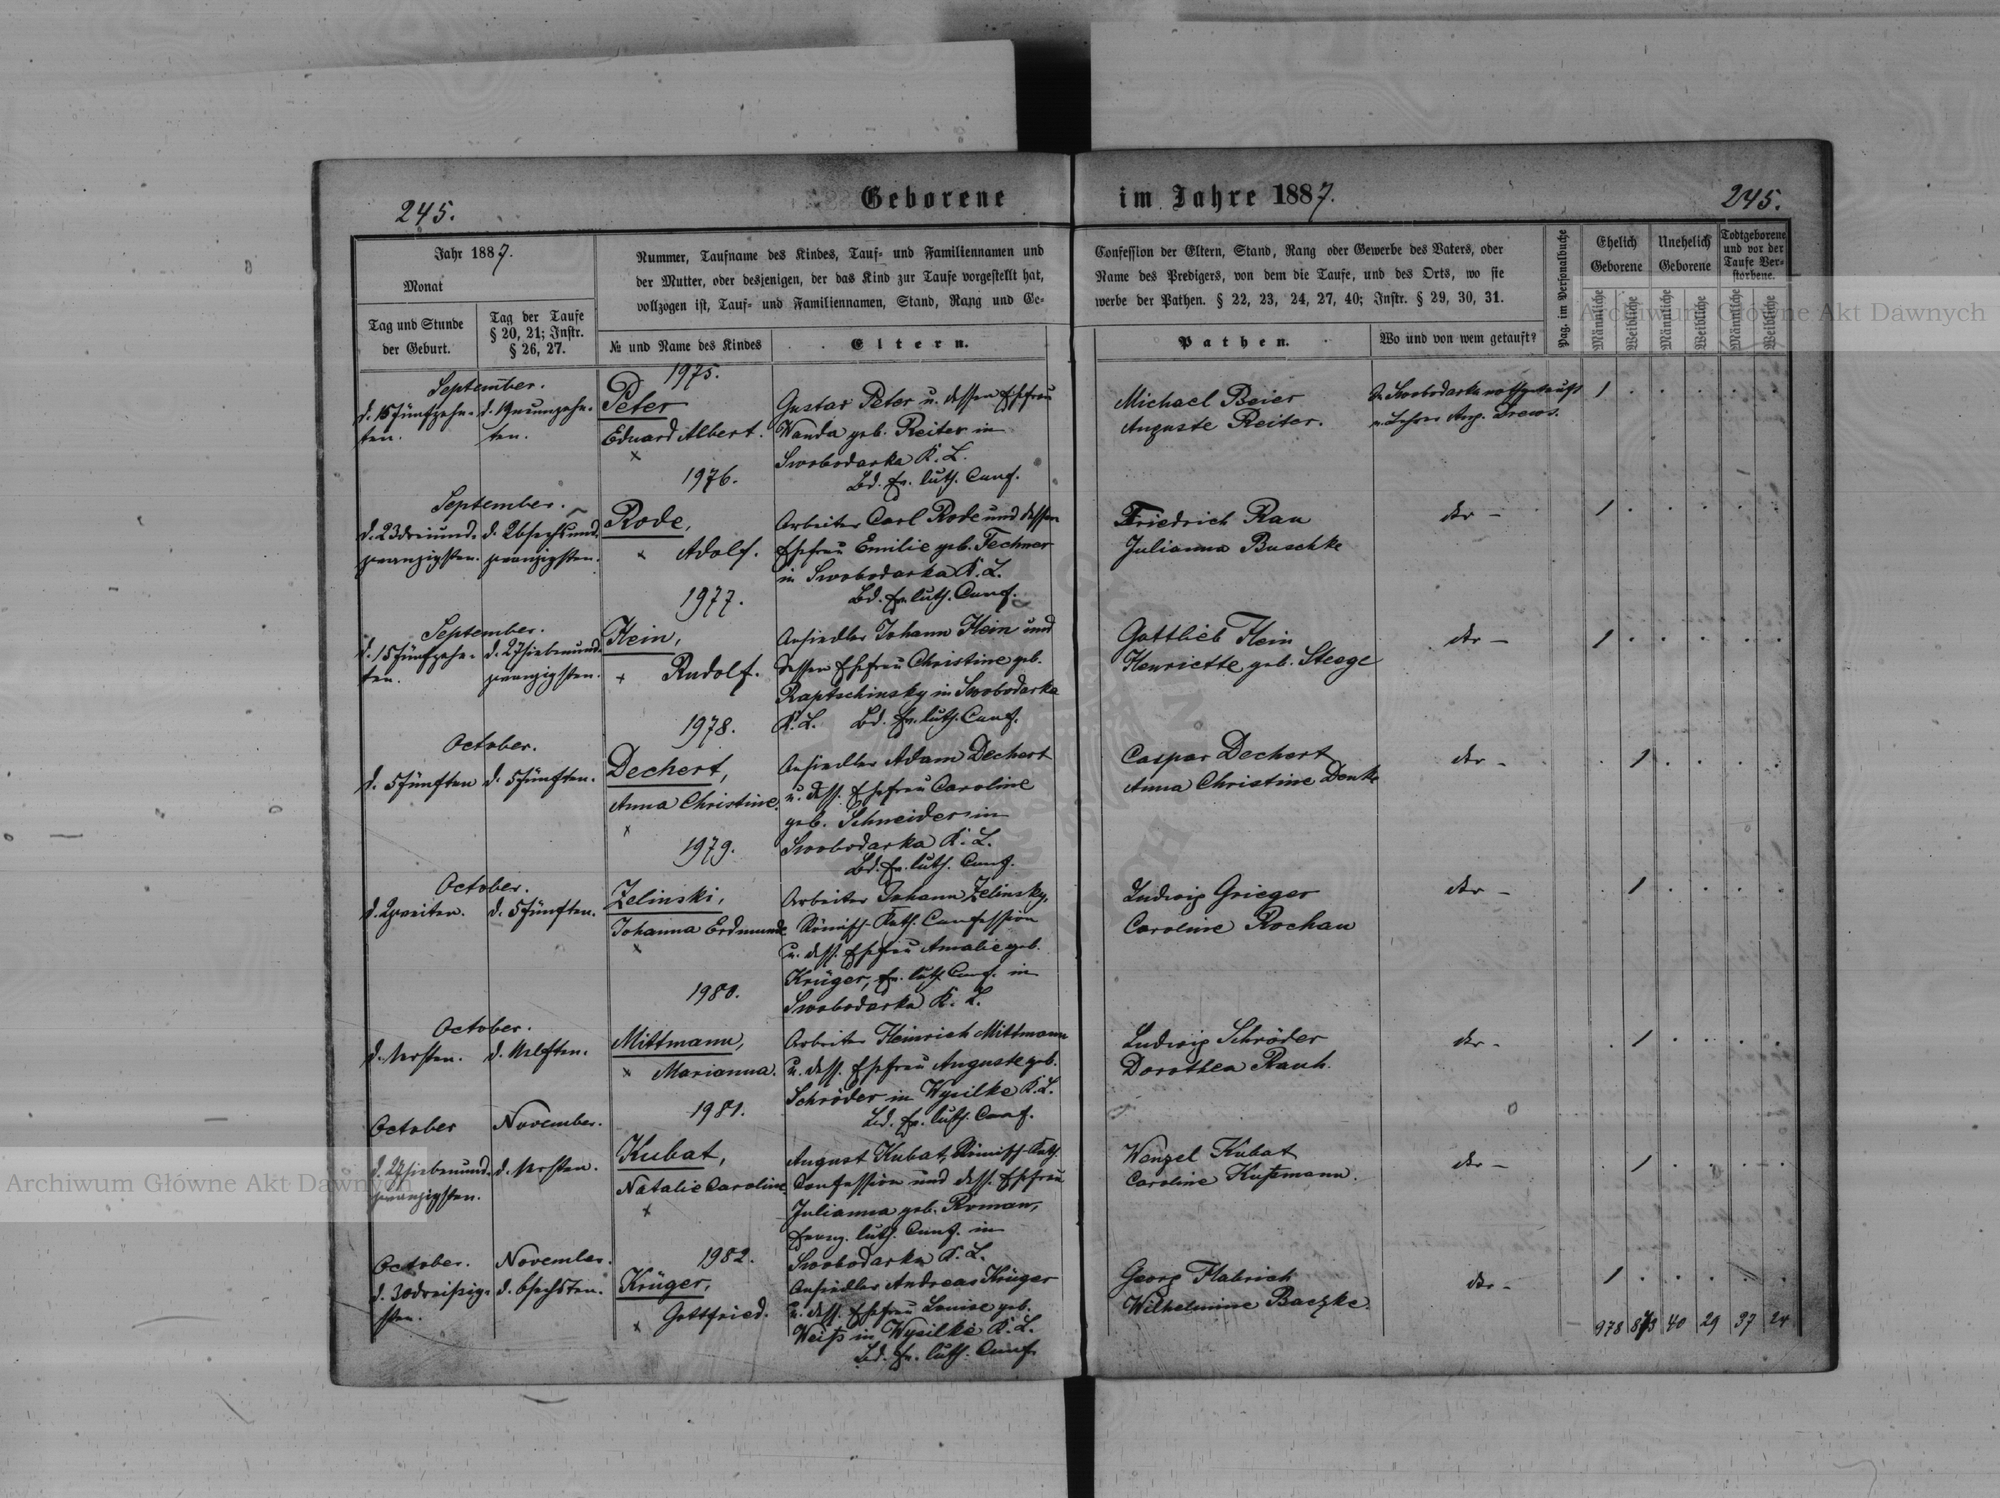 245.
Geborene im Jahre 1887.
245.
Jahr 1887.
Monat
Tag und Stunde
der Geburt.
Tag der Taufe
§ 20, 21; Instr.
§ 26, 27.
Nummer, Taufname des Kindes, Tauf- und Familiennamen und
der Mutter, oder desjenigen, der das Kind zur Taufe vorgestellt hat,
vollzogen ist, Tauf- und Familiennamen, Stand, Rang und Ge-
№ und Name des Kindes
Eltern.
Confession der Eltern, Stand, Rang oder Gewerbe des Vaters, oder
Name des Predigers, von dem die Taufe, und des Orts, wo sie
werbe der Pathen. § 22, 23, 24, 27, 40; Instr. § 29, 30, 31.
Pathen.
Wo und von wem getauft?
Pag. im Personalbuche
Ehelich
Geborene
Unehelich
Geborene
Todtgeborene
und vor der
Taufe Ver-
storbene.
Männliche
Weibliche
Männliche
Weibliche
Männliche
Weibliche
1975.
September.
d. 15 fünfzehn-
ten.
d. 19 neunzehn-
ten.
Peter
Eduard Albert.
×
Gustav Peter u. dessen Ehefrau
Wanda geb. Reiter in
Swobodarka K. L.
Bd. Ev. luth. Conf.
Michael Beier
Auguste Reiter.
In Swobodarka nothgetauft
v. Lehrer Aug. Drews.
1
1976.
September.
d. 23 dreiund-
zwanzigsten.
d. 26 sechsund-
zwanzigsten.
Rode,
× Adolf.
Arbeiter Carl Rode und dessen
Ehefrau Emilie geb. Techner
in Swobodarka K. L.
Bd. Ev. luth. Conf.
Friedrich Rau
Julianna Buschke
dto -
1
1977.
September.
d. 15 fünfzehn-
ten.
d. 27 siebenund-
zwanzigsten.
Hein,
× Rudolf.
Ansiedler Johann Hein und
dessen Ehefrau Christine geb.
Raptschinsky in Swobodarka
K. L. Bd. Ev. luth. Conf.
Gottlieb Hein
Henriette geb. Steege
dto -
1
1978.
October.
d. 5 fünften
d. 5 fünften.
Dechert,
Anna Christine.
×
Ansiedler Adam Dechert
u. dess. Ehefrau Caroline
geb. Schneider in
Swobodarka K. L.
Bd. Ev. luth. Conf.
Caspar Dechert
Anna Christine Denke
dto -
1
1979.
October.
d. 2 zweiten.
d. 5 fünften.
Zelinski,
Johanna Erdmunde
×
Arbeiter Johann Zelinsky,
Römisch-Kath. Confession
u. dess. Ehefrau Amalie geb.
Krüger, Ev. luth. Conf. in
Swobodarka K. L.
Ludwig Grieger
Caroline Rochau
dto -
1
1980.
October.
d. 1 ersten.
d. 11 elften.
Mittmann,
× Marianna.
Arbeiter Heinrich Mittmann
u. dess. Ehefrau Auguste geb.
Schröder in Wysilke K. L.
Bd. Ev. luth. Conf.
Ludwig Schröder
Dorothea Rauh.
dto -
1
1981.
October
d. 27 siebenund-
zwanzigsten.
November.
d. 1 ersten.
Kubat,
Natalie Caroline
×
August Kubat, Römisch-Kath.
Confession und dess. Ehefrau
Julianna geb. Roman,
Evang. luth. Conf. in
Swobodarka K. L.
Wenzel Kubat
Caroline Kußmann.
dto -
1
1982.
October.
d. 30 dreißig-
sten.
November.
d. 6 sechsten.
Krüger,
× Gottfried.
Ansiedler Andreas Krüger
u. dess. Ehefrau Louise geb.
Weiß in Wysilke K. L.
Bd. Ev. luth. Conf.
Georg Habrich
Wilhelmine Baezke.
dto -
1
978 40 29 37 24
Archiwum Główne Akt Dawnych
Archiwum Główne Akt Dawnych